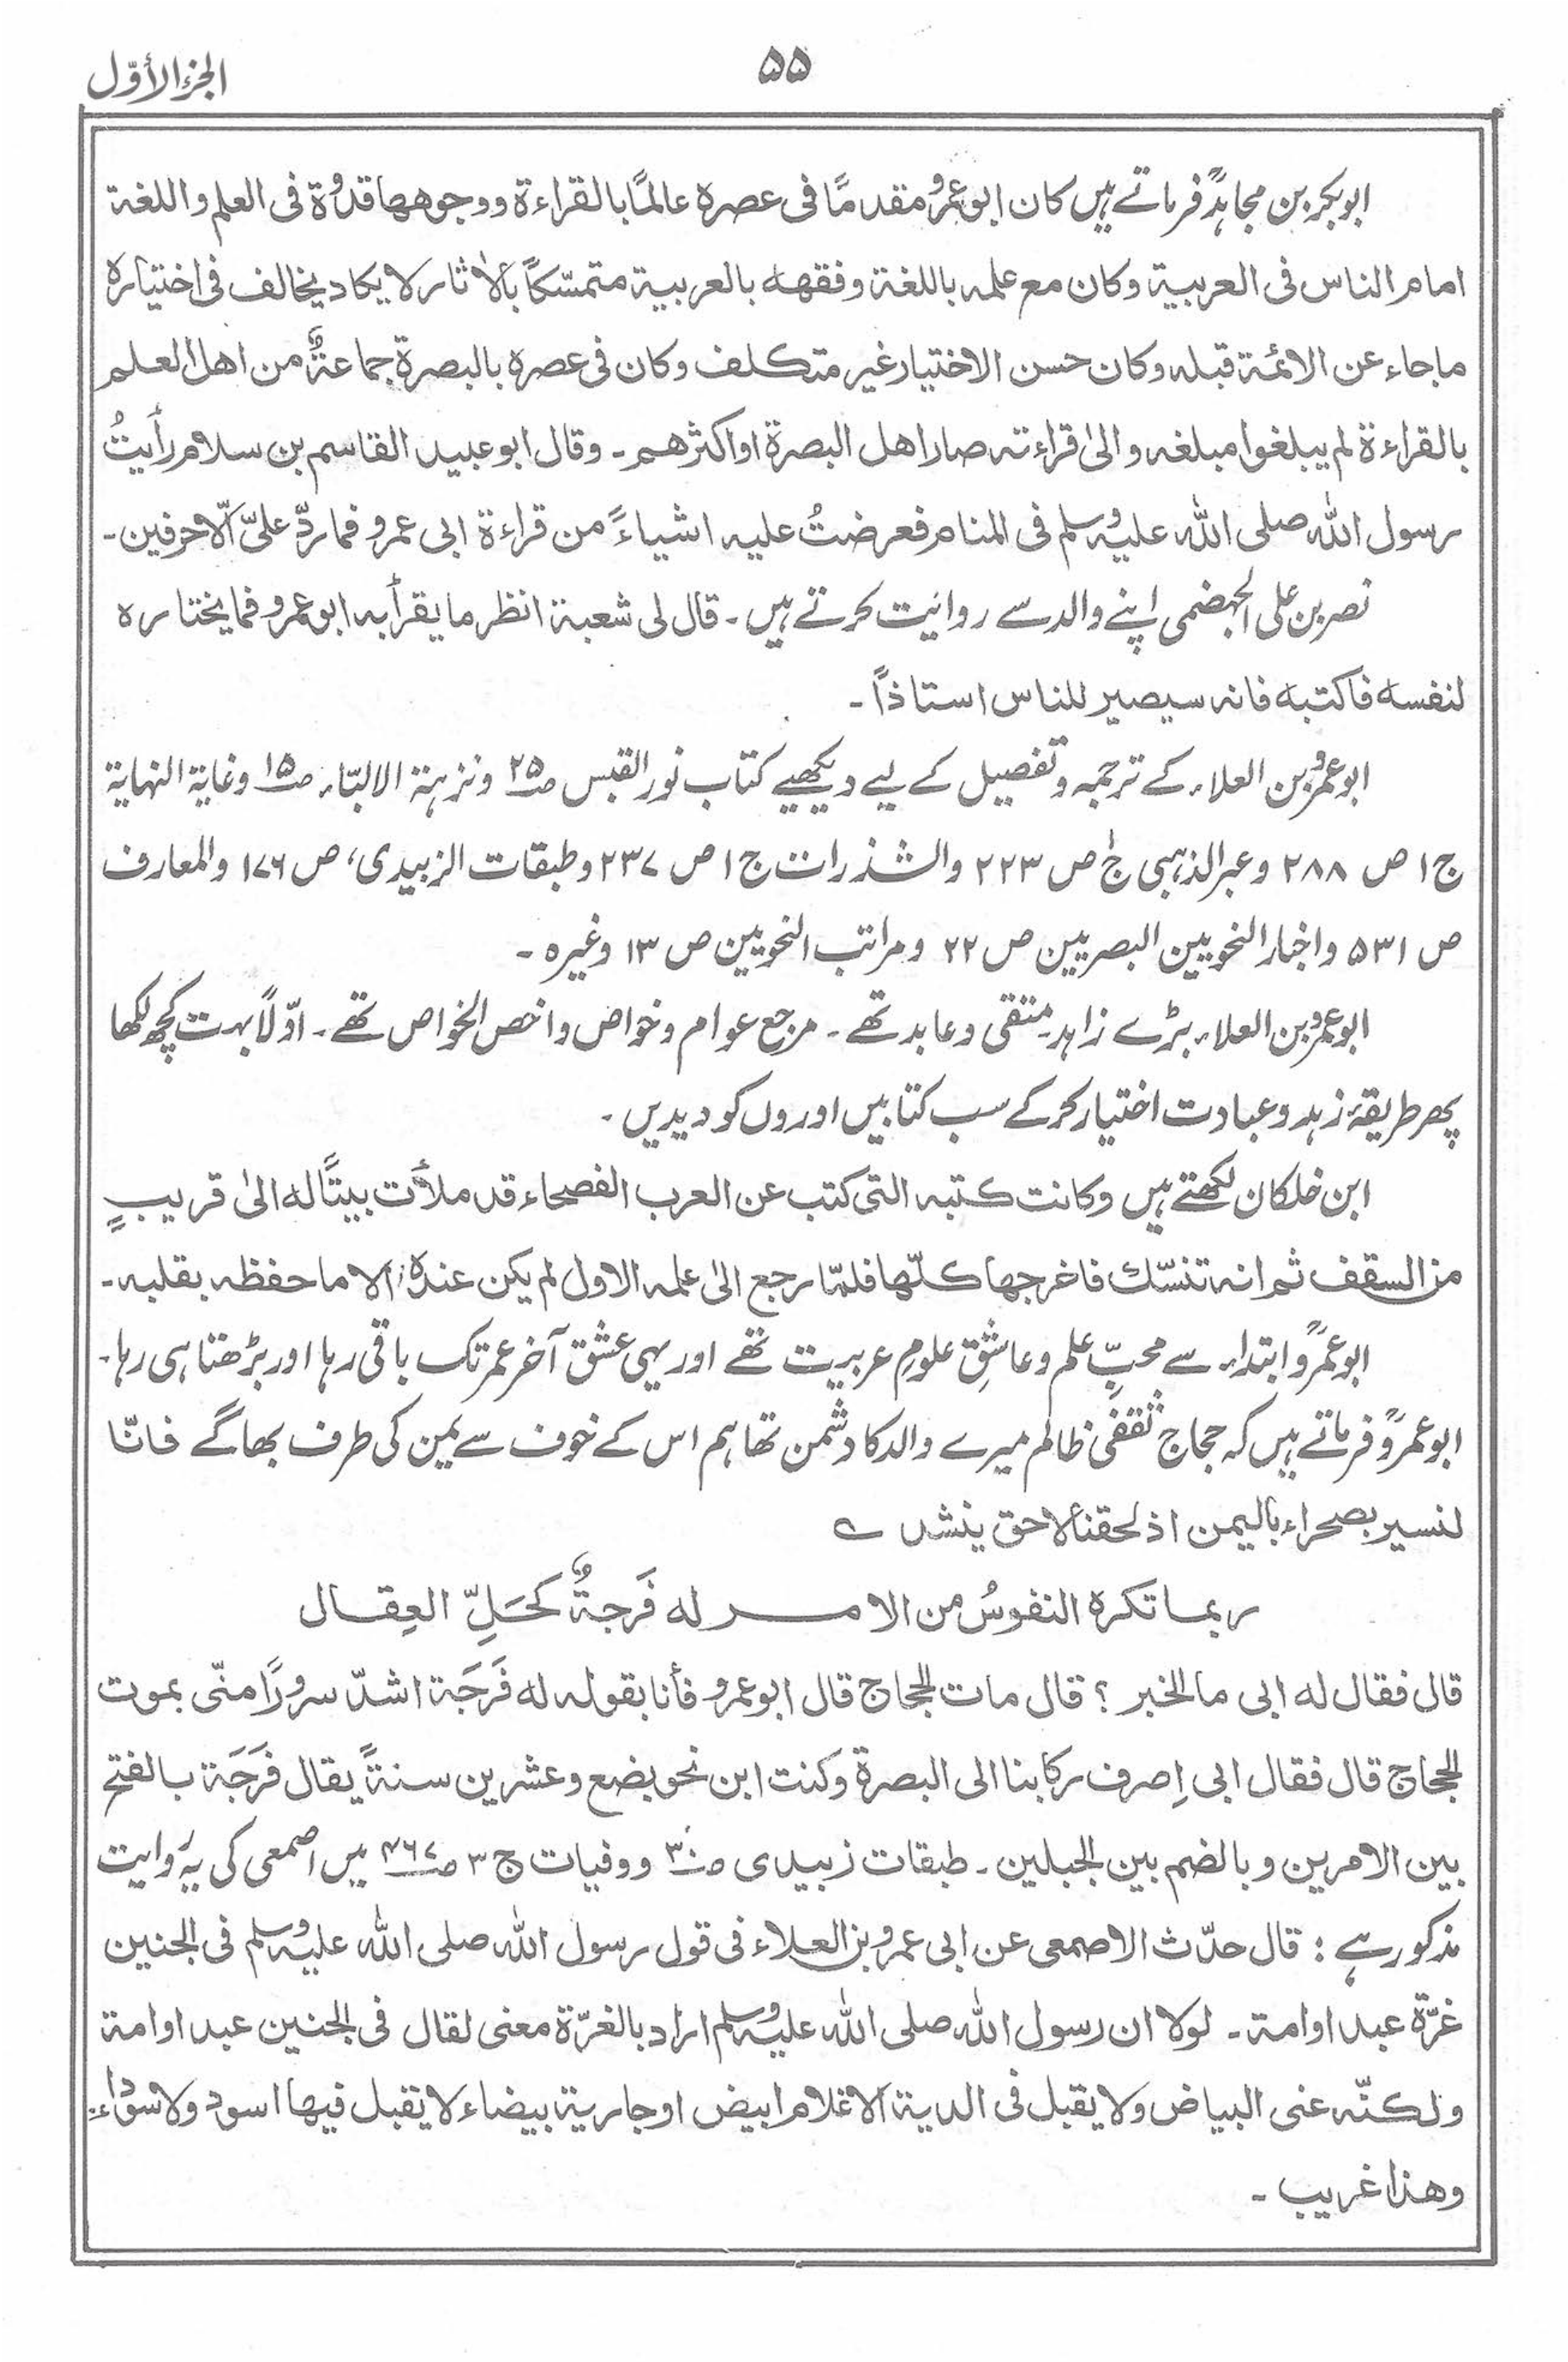 ۵۵
الجزء الأوّل
ابوبکر بن مجاہدؒ فرماتے ہیں کان ابوعمروؒ مقدمًا فی عصرہ عالمًا بالقراءۃ ووجوھھا قدوۃ فی العلم واللغۃ
امام الناس فی العربیۃ وکان مع علمہ باللغۃ وفقھہ بالعربیۃ متمسّکًا بالاٰثار لا یکاد یخالف فی اختیارہ
ماجاء عن الائمۃ قبلہ وکان حسن الاختیار غیر متکلف وکان فی عصرہ بالبصرۃ جماعۃٌ من اھل العلم
بالقراءۃ لم یبلغوا مبلغہ والیٰ قراءتہ صار اھل البصرۃ او اکثرھم۔ وقال ابوعبید القاسم بن سلام رأیتُ
رسول اللہ صلی اللہ علیہ وسلم فی المنام فعرضتُ علیہ اشیاءً من قراءۃ ابی عمرو فما ردّ علیّ الّا حرفین۔
نصر بن علی الجہضمی اپنے والد سے روایت کرتے ہیں۔ قال لی شعبۃ انظر ما یقرأ بہ ابوعمرو فما یختارہ
لنفسہ فاکتبہ فانہ سیصیر للناس استاذاً۔
ابوعمرو بن العلاء کے ترجمہ وتفصیل کے لیے دیکھیے کتاب نور القبس ص۲۵ ونزہۃ الالبّاء ص۱۵ وغایۃ النہایۃ
ج۱ ص ۲۸۸ وعبر الذہبی ج۱ ص ۲۲۳ والشذرات ج۱ ص ۲۳۷ وطبقات الزبیدی، ص ۱۷۶ والمعارف
ص ۵۳۱ واخبار النحویین البصریین ص ۲۲ ومراتب النحویین ص ۱۳ وغیرہ۔
ابوعمرو بن العلاء بڑے زاہد۔ متقی وعابد تھے۔ مرجع عوام وخواص واخص الخواص تھے۔ اوّلاً بہت کچھ لکھا
پھر طریقۂ زہد وعبادت اختیار کرکے سب کتابیں اوروں کو دیدیں۔
ابن خلکان لکھتے ہیں وکانت کتبہ التی کتب عن العرب الفصحاء قد ملأت بیتًا لہ الیٰ قریبٍ
من السقف ثم انہ تنسّک فاخرجھا کلّھا فلمّا رجع الیٰ علمہ الاول لم یکن عندہ الا ما حفظہ بقلبہ۔
ابوعمروؒ ابتداء سے محبِّ علم وعاشقِ علومِ عربیت تھے اور یہی عشق آخر عمر تک باقی رہا اور بڑھتا ہی رہا۔
ابوعمروؒ فرماتے ہیں کہ حجاج ثقفی ظالم میرے والد کا دشمن تھا ہم اس کے خوف سے یمن کی طرف بھاگے فانّا
لنسیر بصحراء بالیمن اذ لحقنا لاحق ینشد ے
ربما تکرہ النفوسُ من الامـــر لہ فَرجۃٌ کحَلِّ العِقال
قال فقال لہ ابی ما الخبر ؟ قال مات الحجاج قال ابوعمرو فأنا بقولہ لہ فَرَجَۃ اشدّ سرورًا منّی بموت
الحجاج قال فقال ابی اِصرف رکابنا الی البصرۃ وکنت ابن نحو بضع وعشرین سنۃً یقال فَرَجَۃ بالفتح
بین الامرین وبالضم بین الجبلین۔ طبقات زبیدی ص۳۰ ووفیات ج ۳ ص۴۶۷ میں اصمعی کی یہ روایت
مذکور ہے : قال حدّث الاصمعی عن ابی عمرو بن العلاء فی قول رسول اللہ صلی اللہ علیہ وسلم فی الجنین
غرّۃ عبد او امۃ۔ لولا ان رسول اللہ صلی اللہ علیہ وسلم اراد بالغرّۃ معنی لقال فی الجنین عبد او امۃ
ولکنّہ عنی البیاض ولا یقبل فی الدیۃ الا غلام ابیض او جاریۃ بیضاء لا یقبل فیھا اسود ولا سوداء۔
وھذا غریب۔